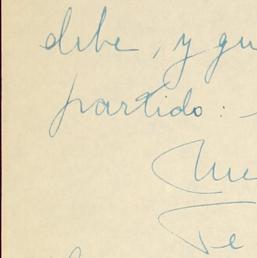 debe, y qu
partido: -
Me
Te